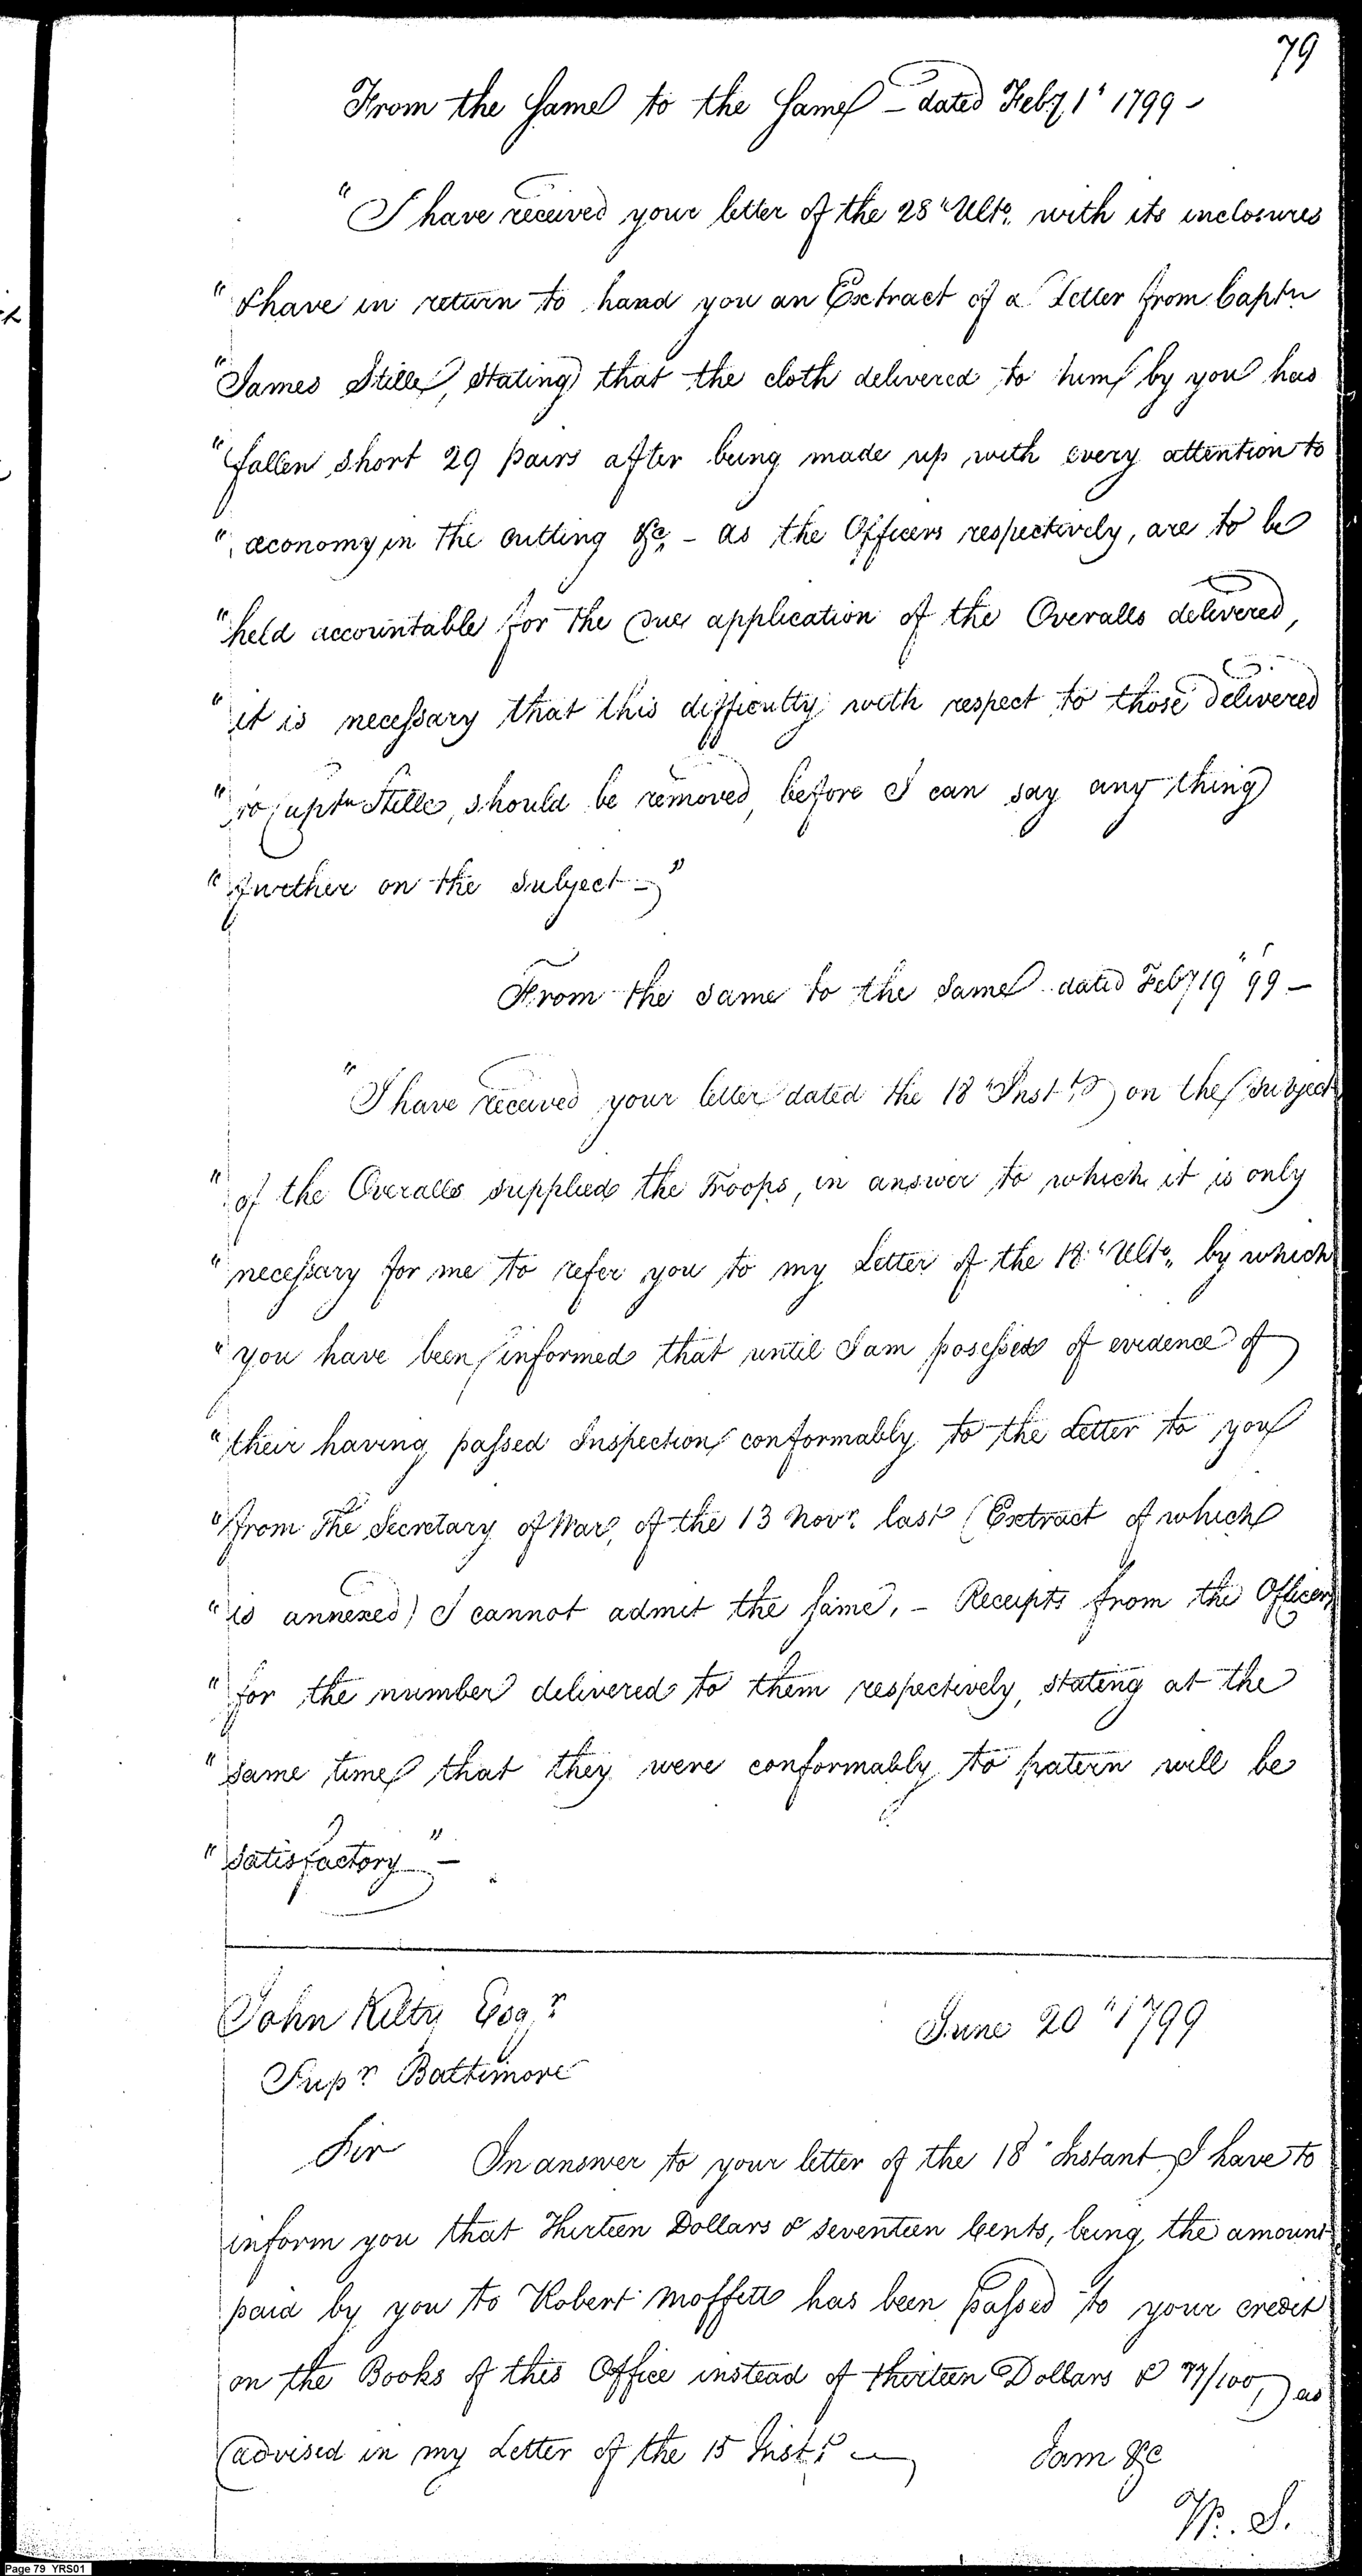 79
From the same to the same – dated Feby 1" 1799 –
"I have received your letter of the 28" Ulto. with its inclosures
" & have in return to hand you an Extract of a Letter from Captn
"James Stille, stating that the cloth delivered to him by you has
"fallen short 29 pairs after being made up with every attention to
" œconomy in the cutting &c. – as the Officers respectively, are to be
"held accountable for the due application of the Overalls delivered,
" it is necessary that this difficulty with respect to those delivered
" to Captn Stille, should be removed, before I can say any thing
" further on the subject – "
From the same to the same dated Feby 19" 99 –
"I have received your letter dated the 18" Inst. on the subject
" of the Overalls supplied the Troops, in answer to which it is only
" necessary for me to refer you to my Letter of the 18" Ulto. by which
" you have been informed that until I am posessed of evidence of
" their having passed Inspection conformably to the Letter to you
"from The Secretary of War, of the 13 Novr. last (Extract of which
" is annexed) I cannot admit the same. – Receipts from the Officers
" for the number delivered to them respectively, stating at the
" same time that they were conformably to patern will be
" satisfactory " –
John Kilty Esqr
June 20" 1799
Supr Baltimore
Sir In answer to your letter of the 18" Instant I have to
inform you that Thirteen Dollars & seventeen Cents, being the amount
paid by you to Robert Moffett has been passed to your credit
on the Books of this Office instead of thirteen Dollars & 77/100, as
advised in my Letter of the 15 Inst. –
I am &c
W. S.
Page 79 YRS01